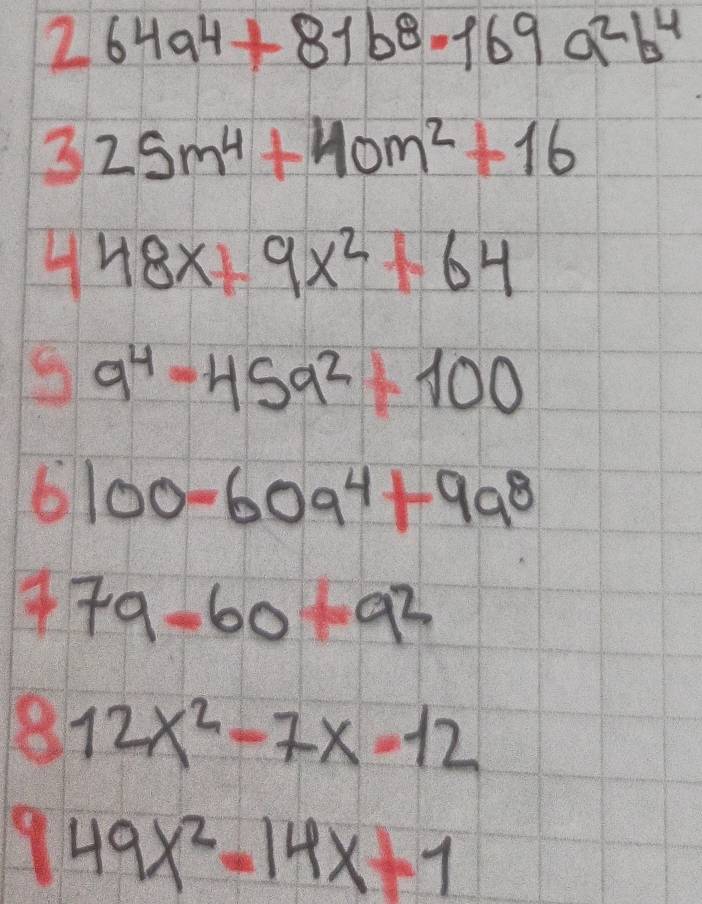 2 64a⁴ + 81b⁸ - 169 a²b⁴
3 25m⁴ + 40m² + 16
4 48x + 9x² + 64
5 a⁴ - 45a² + 100
6 100 - 60a⁴ + 9a⁸
7 7a - 60 + a²
8 12x² - 7x - 12
9 49x² - 14x + 1